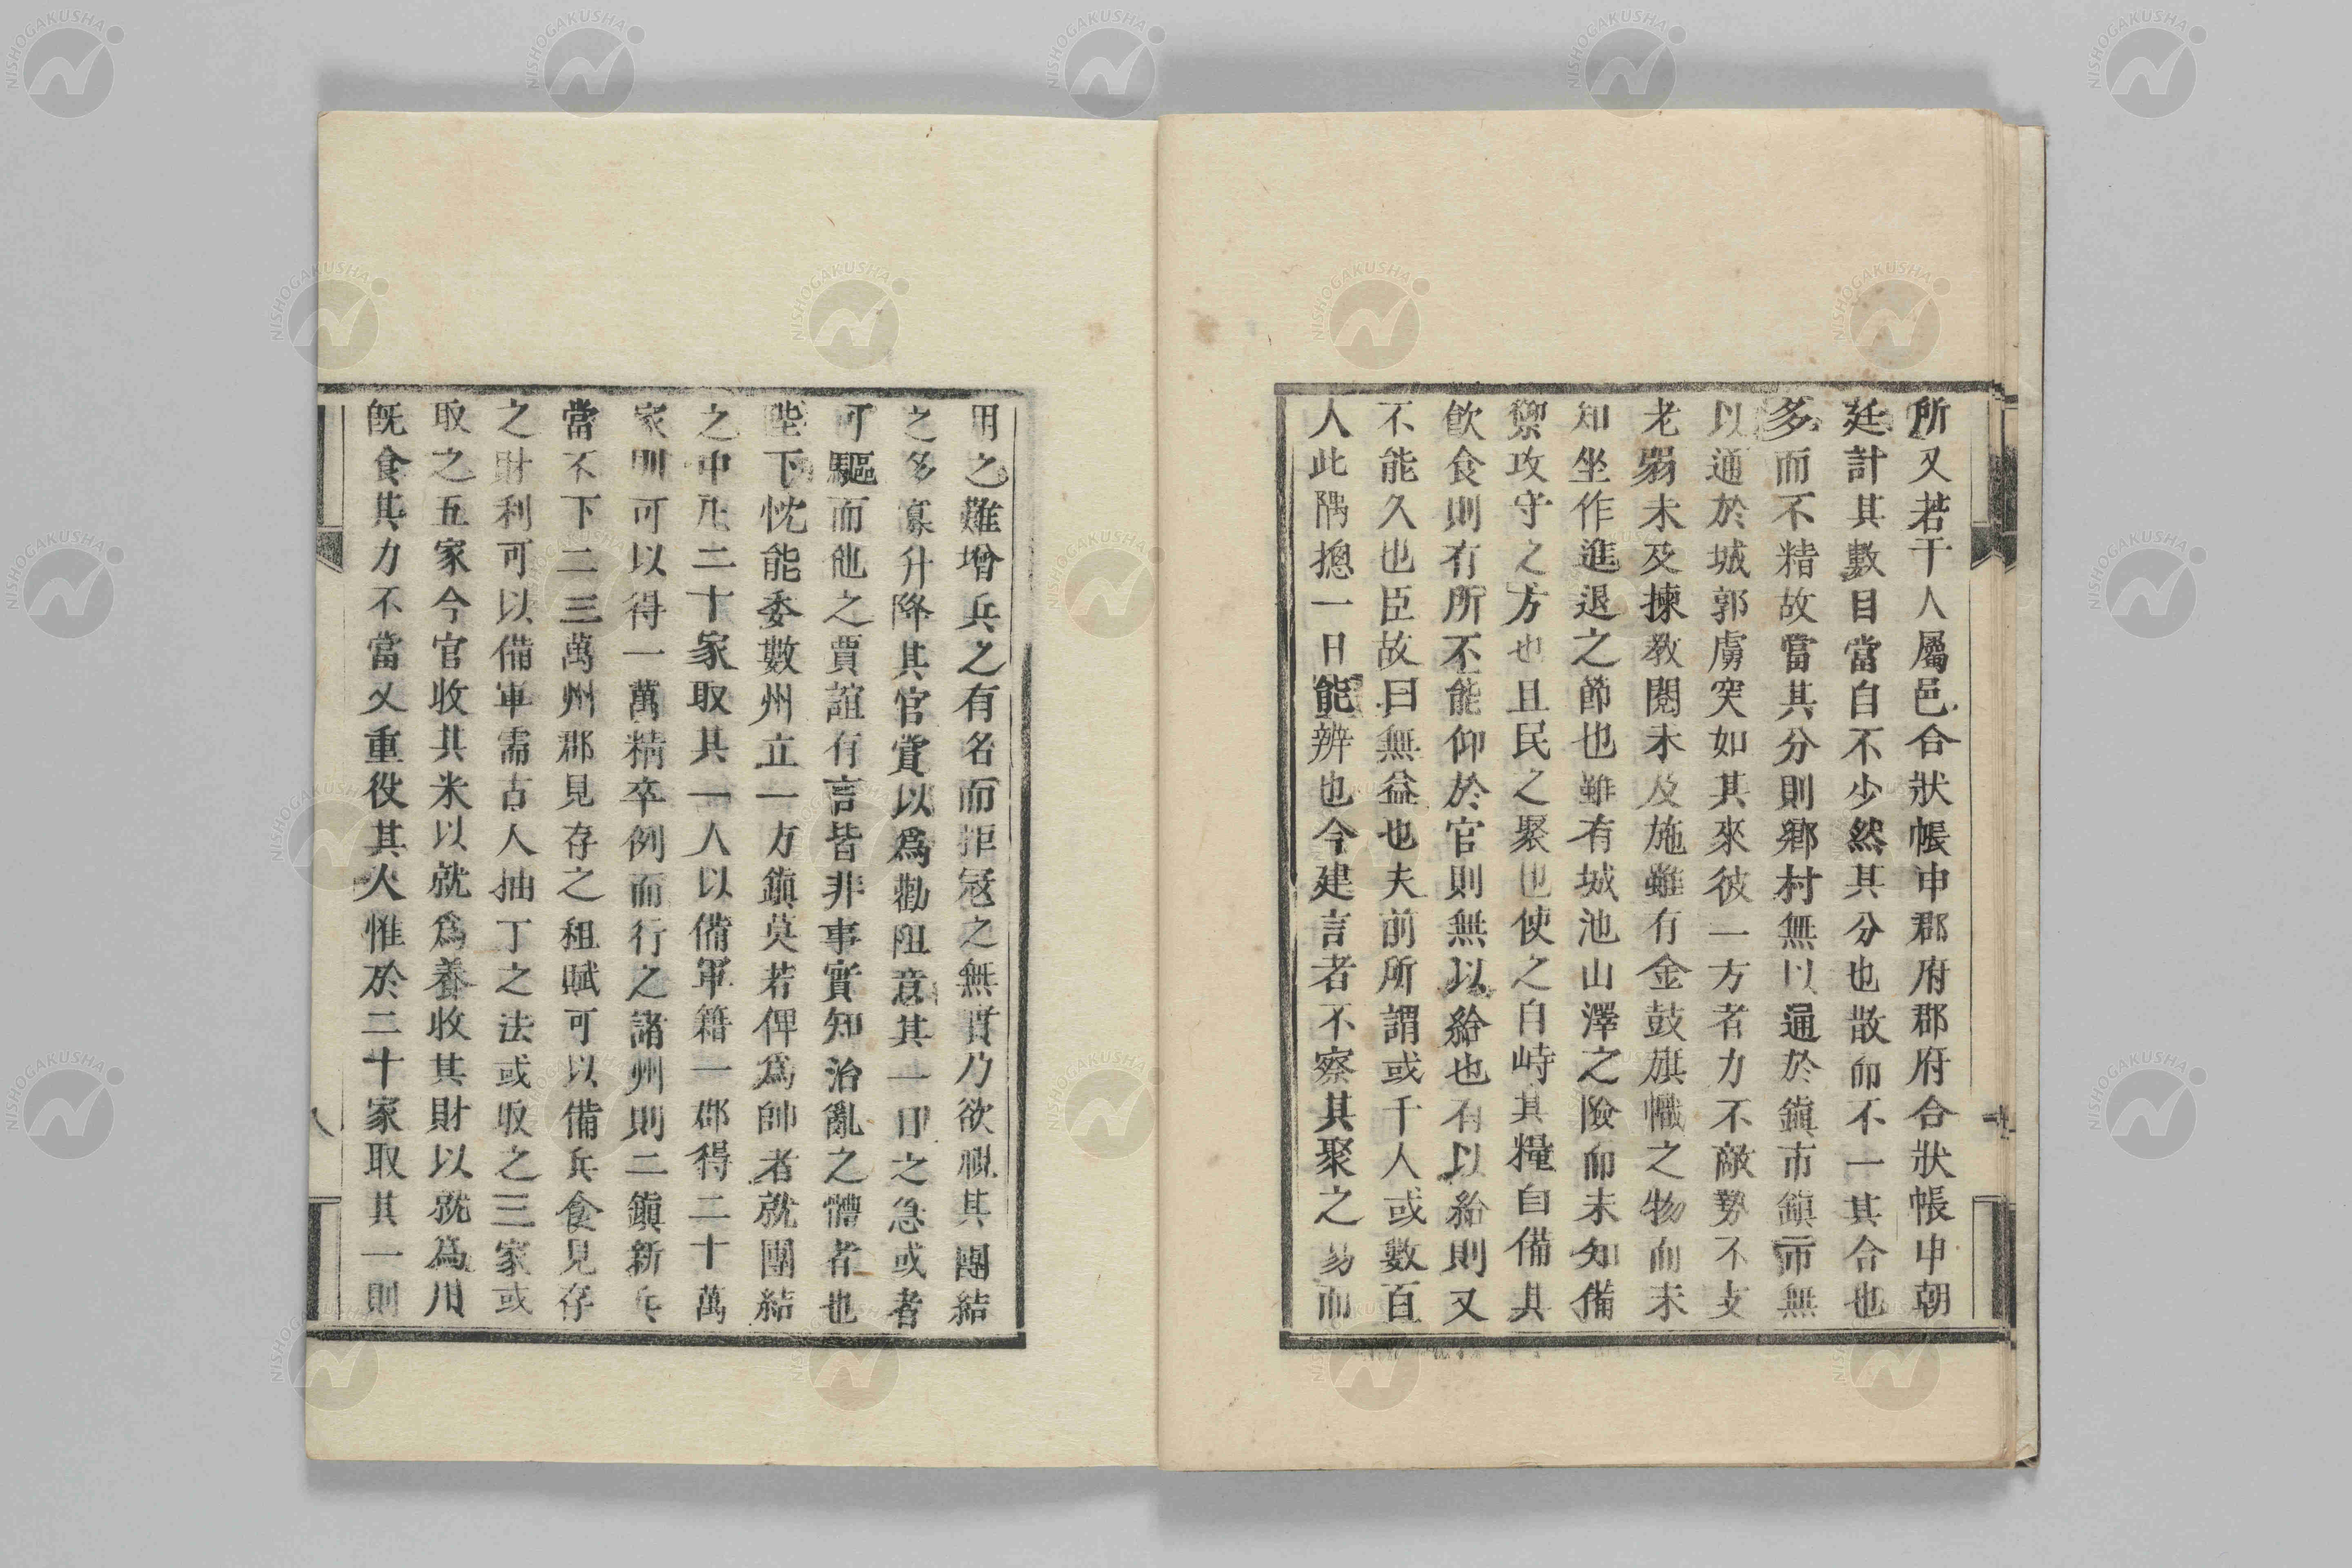 所又若干人屬邑合狀帳申郡府郡府合狀帳申朝
廷計其數目當自不少然其分也散而不一其合也
多而不精故當其分則鄉村無以通於鎮市鎮市無
以通於城郭虜突如其來彼一方者力不敵勢不支
老弱未及揀教閱未及施雖有金鼓旗幟之物而未
知坐作進退之節也雖有城池山澤之險而未知備
禦攻守之方也且民之聚也使之自峙其糧自備其
飲食則有所不能仰於官則無以給也有以給則又
不能久也臣故曰無益也夫前所謂或千人或數百
人此隅摠一日能辨也今建言者不察其聚之易而
用之難增兵之有名而拒寇之無實乃欲視其團結
之多寡升降其官賞以爲勸阻意其一日之急或者
可驅而他之賈誼有言皆非事實知治亂之體者也
陛下忱能委數州立一方鎮莫若俾爲帥者就團結
之中凡二十家取其一人以備軍籍一郡得二十萬
家則可以得一萬精卒例而行之諸州則二鎮新兵
當不下二三萬州郡見存之租賦可以備兵食見存
之財利可以備軍需古人抽丁之法或取之三家或
取之五家今官收其米以就爲養收其財以就爲用
既食其力不當又重役其人惟於二十家取其一則
八
NISHOGAKUSHA